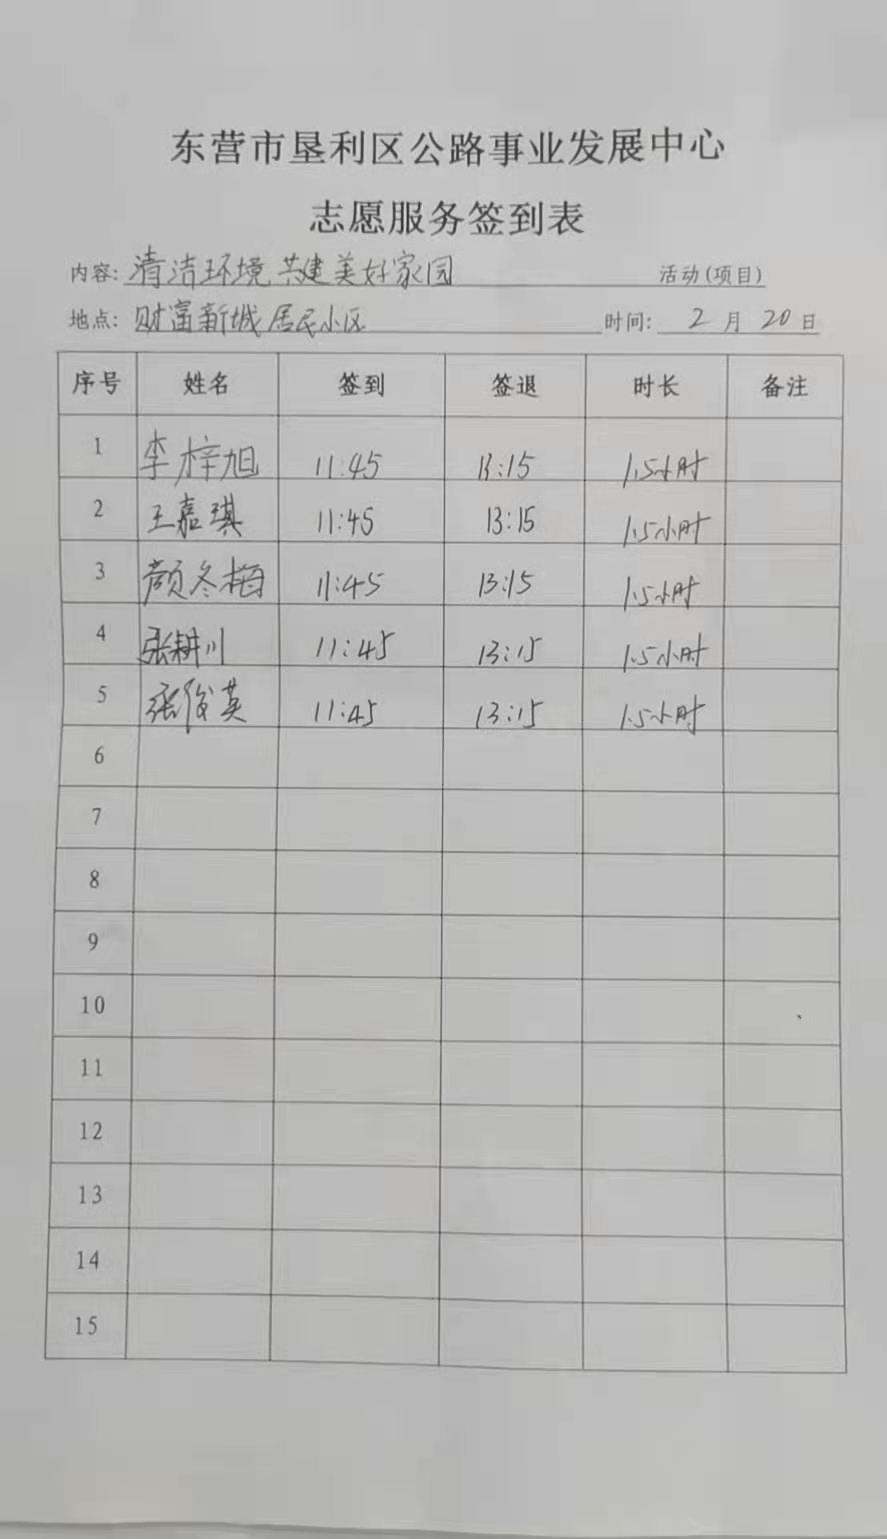 东营市垦利区公路事业发展中心
志愿服务签到表
内容: 清洁环境 共建美好家园 活动(项目)
地点: 财富新城居民小区 时间: 2 月 20 日
序号 姓名 签到 签退 时长 备注
1 李梓旭 11:45 13:15 1.5小时
2 王嘉琪 11:45 13:15 1.5小时
3 颜冬梅 11:45 13:15 1.5小时
4 张耕川 11:45 13:15 1.5小时
5 张俊英 11:45 13:15 1.5小时
6
7
8
9
10
11
12
13
14
15